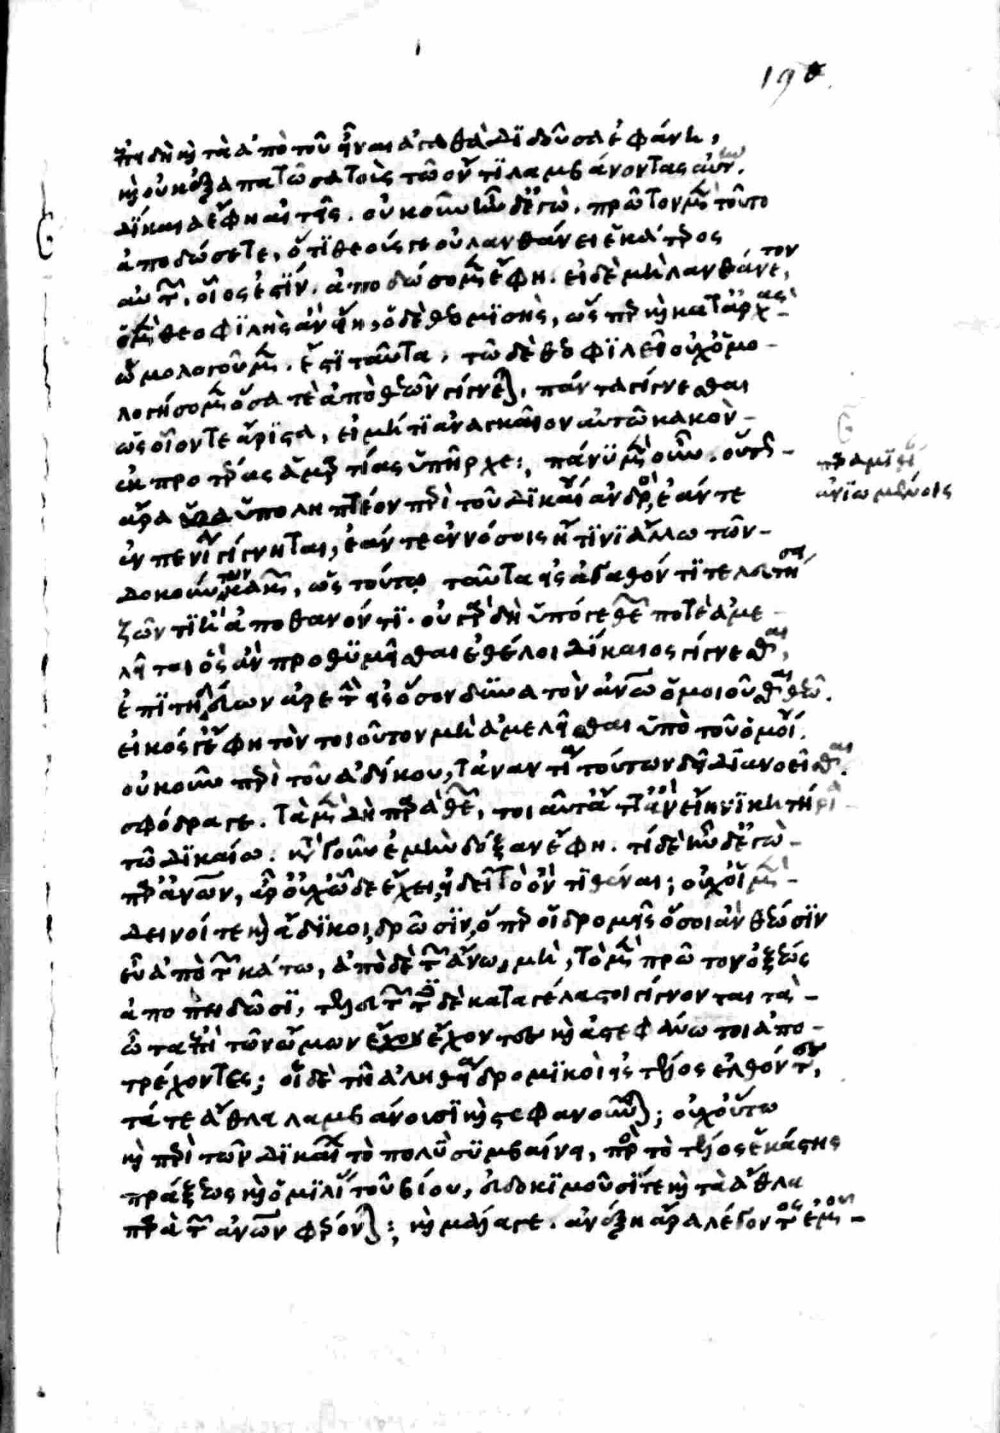 ἐπειδὴ καὶ τὰ ἀπὸ τοῦ εἶναι ἀγαθὰ διδοῦσα ἐφάνη,
καὶ οὐκ ἐξαπατῶσα τοὺς τῶ ὄντι λαμβάνοντας αὐτήν.
δίκαια ἔφη αἰτῆς. οὐκοῦν ἦν δ' ἐγώ. πρῶτον μὲν τοῦτο
ἀποδώσετε, ὅτι θεούς γε οὐ λανθάνει ἑκάτερος
αὐτῶν, οἷος ἐστίν. ἀποδώσομεν ἔφη. εἰ δὲ μὴ λανθάνετον,
ὁ μὲν θεοφιλὴς ἂν εἴη, ὁ δὲ θεομισὴς, ὥσπερ καὶ κατ' ἀρχὰς
ὡμολογοῦμεν. ἔστι ταῦτα. τῶ δὲ θεοφιλεῖ οὐχ ὁμο-
λογήσομεν ὅσα τε ἀπὸ θεῶν γίγνεται, πάντα γίγνεσθαι
ὡς οἷόν τε ἄριστα, εἰ μή τι ἀναγκαῖον αὐτῶ κακὸν
ἐκ προτέρας ἁμαρτίας ὑπῆρχε; πάνυ μὲν οὖν. οὕτως
ἄρα ὑποληπτέον περὶ τοῦ δικαίου ἀνδρός, ἐάν τε
ἐν πενία γίγνηται, ἐάν τε ἐν νόσοις ἤ τινι ἄλλω τῶν
δοκούντων κακῶν, ὡς τούτω ταῦτα εἰς ἀγαθόν τι τελευτήσει
ζῶντι ἢ ἀποθανόντι. οὐ γὰρ δὴ ὑπό γε θεῶν ποτὲ ἀμε-
λεῖται ὃς ἂν προθυμεῖσθαι ἐθέλοι δίκαιος γίγνεσθαι,
ἐπιτηδεύων ἀρετὴν εἰς ὅσον δυνατὸν ἀνθρώπω ὁμοιοῦσθαι θεῶ.
εἰκός γ' ἔφη τὸν τοιοῦτον μὴ ἀμελεῖσθαι ὑπὸ τοῦ ὁμοίου.
οὐκοῦν περὶ τοῦ ἀδίκου, τἀναντία τούτων δεῖ διανοεῖσθαι.
σφόδρα γε. τὰ μὲν δὴ παρὰ θεῶν, τοιαῦτ' ἄττ' ἂν εἴη νικητήρια
τῶ δικαίω. κατὰ γοῦν ἐμὴν δόξαν ἔφη. τί δὲ ἦν δ' ἐγὼ
παρ' ἀνθρώπων, ἆρ' οὐχ ὧδε ἔχει, εἰ δεῖ τὸ ὂν τιθέναι; οὐχ οἱ μὲν
δεινοί τε καὶ ἄδικοι, δρῶσιν, ὅπερ οἱ δρομῆς ὅσοι ἂν θέωσιν
εὖ ἀπὸ τῶν κάτω, ἀπὸ δὲ τῶν ἄνω, μή, τὸ μὲν πρῶτον ὀξέως
ἀποπηδῶσι, τελευτῶντες δὲ καταγέλαστοι γίγνονται τὰ
ὦτα ἐπὶ τῶν ὤμων ἔχοντες καὶ ἀστεφάνωτοι ἀπο-
τρέχοντες; οἱ δὲ τῆ ἀληθεία δρομικοὶ εἰς τέλος ἐλθόντες,
τά τε ἆθλα λαμβάνουσι καὶ στεφανοῦνται; οὐχ οὕτω
καὶ περὶ τῶν δικαίων τὸ πολὺ συμβαίνει, πρὸς τὸ τέλος ἑκάστης
πράξεως καὶ ὁμιλίας τοῦ βίου, εὐδοκιμοῦσί τε καὶ τὰ ἆθλα
παρὰ τῶν ἀνθρώπων φέρονται; καὶ μάλα γε. ἀνέξη ἄρα λέγοντος ἐμοῦ
ἀνιωμένοις